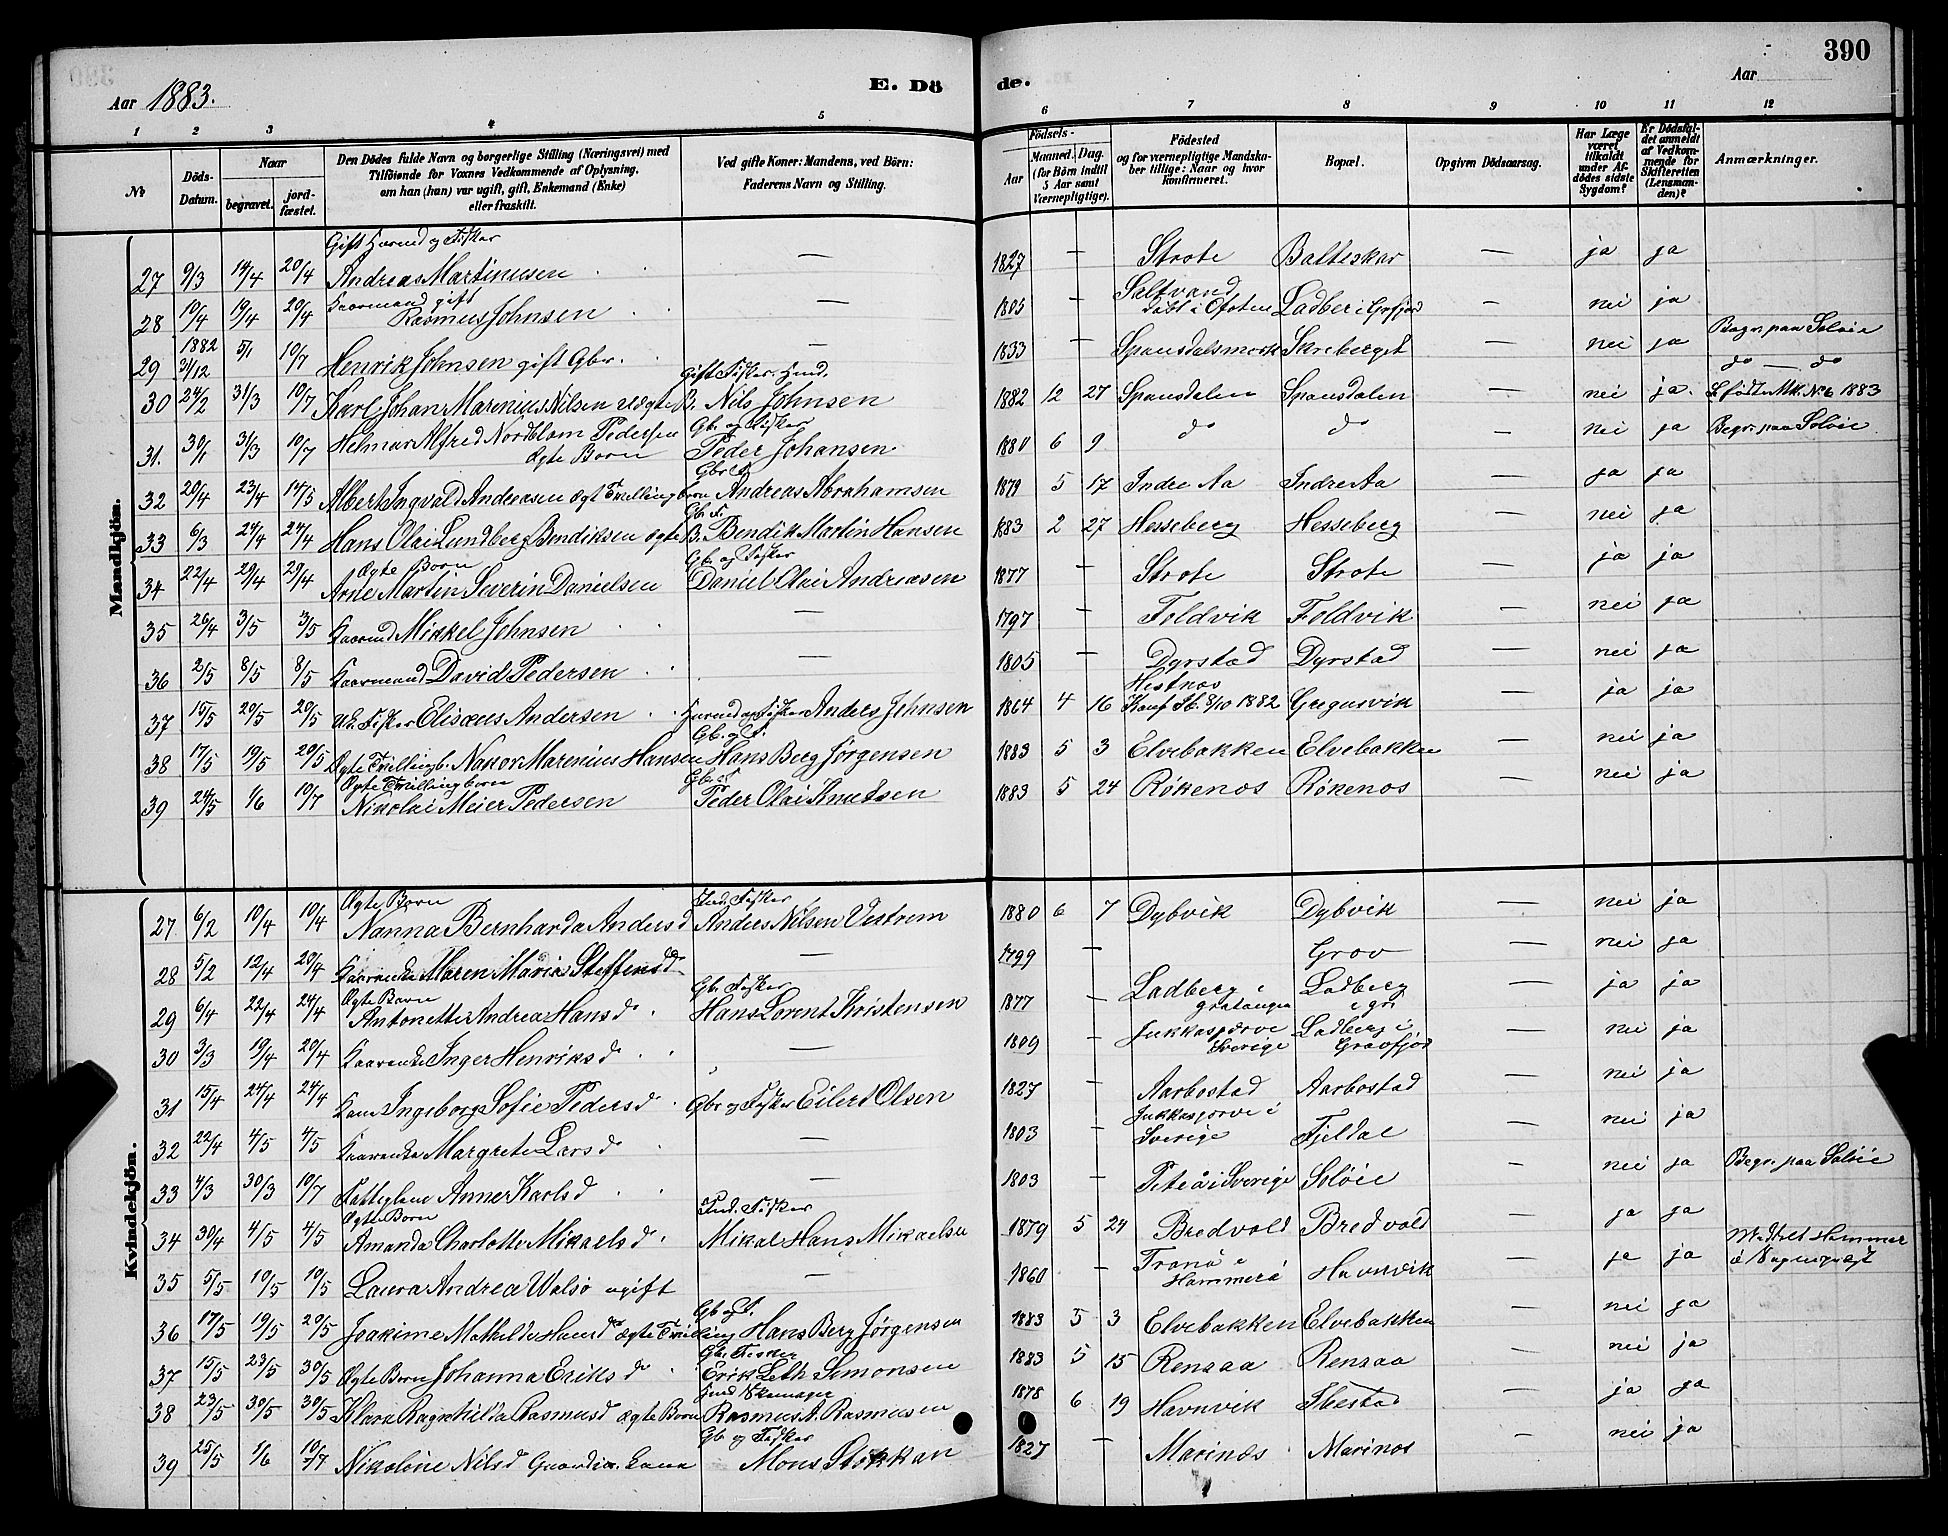 390
Aar 1883.
E. Dö de.
Aar
1 2 3 4 5 6 7 8 9 10 11 12
No
Döds-Datum.
Naar
begravet.
jord-fæstet.
Den Dödes fulde Navn og borgerlige Stilling (Næringsvei) med
Tilföiende for Voxnes Vedkommende af Oplysning,
om han (hun) var ugift, gift, Enkemand (Enke)
eller fraskilt.
Ved gifte Koner: Mandens, ved Börn:
Faderens Navn og Stilling.
Födsels-
Aar
Maaned. Dag.
(for Börn indtil
5 Aar samt
Værnepligtige).
Födested
og for værnepligtige Mandska-
ber tillige: Naar og hvor
konfirmeret.
Bopæl.
Opgiven Dödsaarsag.
Har Læge
været
tilkaldt
under Af-
dödes sidste
Sygdom?
Er Dödsfal-
det anmeldt
af Vedkom-
mende for
Skifteretten
(Lensman-
den)?
Anmærkninger.
Mandkjön.
Gift Husmd og Fisker
27 9/3 14/4 20/4 Andreas Martinusen — 1827 — Strote Balteskar — ja ja
Kaarmand gift
28 10/4 19/4 20/4 Rasmus Johnsen — 1805 — Saltvand döbt i Ofoten Ladber i Grfjord — nei ja
29 1882 31/12 5/1 10/7 Henrik Johnsen gift Gbr. — 1833 — Spansdalsmark Skreberget — nei ja Begr. paa Soløie
Gift Fisker. Husmd.
30 24/2 31/3 10/7 Karl Johan Marenius Nilsen uægte B. Nils Johnsen 1882 12 27 Spansdalen Spansdalen — nei ja. do — do
Se födte Mk. No 6 1883
Gb. og Fisker
31. 30/1 31/3 10/7 Helmar Alfred Nordblom Pedersen ægte Barn Peder Johansen 1880 6 9 do do nei ja Begr. paa Soløie
32 20/4 23/4 14/5 Albert Ingvald Andreasen ægt Tvillingbarn Andreas Abrahamsen 1879 5 17 Indre Aa Indre Aa — ja ja
Gb. F.
33 6/3 24/4 24/4 Hans Olai Lundberg Bendiksen ægte B. Bendik Martin Hansen 1883 2 27 Hesseberg Hesseberg — nei ja
Ægte Barn Gb. og Fisker
34 22/4 29/4 29/4 Arne Martin Severin Danielsen Daniel Olai Andreasen 1877 — Strote Strote — ja ja
35 26/4 3/5 3/5 Kaarmd Mikkel Johnsen — 1797 — Foldvik Foldvik — nei ja
36 2/5 8/5 8/5 Kaarmand David Pedersen — 1805 — Dyrstad Dyrstad — nei ja
37 15/5 20/5 20/5 Uk. Fisker Elisæus Andersen Husmd og Fisker Anders Johnsen 1864 4 16 Hestnæs Konf. Ib. 8/10 1882 Gregusvik — ja ja
Gb. og F.
38 17/5 19/5 20/5 Ægte Tvillingb. Nakor Marenius Hansen Hans Berg Jørgensen 1883 5 3 Elvebakken Elvebakken — nei ja
Ægte Tvillingbarn
39 24/5 1/6 10/7 Nikolai Meier Pedersen Peder Olai Knutsen 1883 5 24 Rökenæs Rökenæs — nei ja
Kvindekjön.
Ægte Barn Ind. Fisker
27 6/2 10/4 10/4 Nanna Bernharda Andersd Anders Nilsen Vestrem 1880 6 7 Dybvik Dybvik — nei ja
28 5/2 12/4 20/4 Kaarenke Maren Maria Steffensd — 1799 — Grov — nei ja
Ægte Barn Gb. Fisker
29 6/4 22/4 24/4 Antonette Andrea Hansd Hans Lorent Kristensen 1877 — Ladberg i Gratangen Ladberg i gr — ja ja
30 3/3 19/4 20/4 Kaarenke Inger Henriksd — 1809 — Jukkasjærve Sverige Ladberg i Gravfjor — nei ja
31 15/4 24/4 24/4 Kone Ingeborg Sofie Pedersd Gbr og Fisker Eilerd Olsen 1827 — Aarbostad Aarbostad — nei ja
32 22/4 4/5 4/5 Kaarenke Margrete Larsd — 1803 — Jukkasjærve i Sverige Fjeldal — nei ja
33 4/3 30/3 10/7 Fattiglem Anne Karlsd — 1803 — Piteå i Sverige Soløie — nei ja Begr. paa Soløie
Ægte Barn Ind. Fisker
34 30/4 4/5 4/5 Amanda Charlotte Mikaelsd Mikal Hans Mikaelsen 1879 5 24 Bredvold Bredvold — ja ja
35 5/5 10/5 10/5 Laura Andrea Walsø ugift — 1860 — Tranö i Hammerö Havnvik — ja ja
Gb og F.
36 17/5 19/5 20/5 Joakime Mathilde Hansd ægte Tvilling Hans Berg Jørgensen 1883 5 3 Elvebakken Elvebakken — nei ja
Gb. Fisker
37 15/5 23/5 30/5 Ægte Barn Johanna Eriksd Erik Leth Simonsen 1883 5 15 Rensaa Rensaa — nei ja
Husmd Skomager
38 23/5 30/5 30/5 Klara Ragnhilda Rasmusd ægte Barn Rasmus A. Rasmusen 1878 6 19 Havnvik Ibestad — ja ja
Gb og Fisker
39 25/5 1/6 10/7 Nikoline Nilsd Kone Mons Stokkan 1827 — Marinæs Marinæs — nei ja